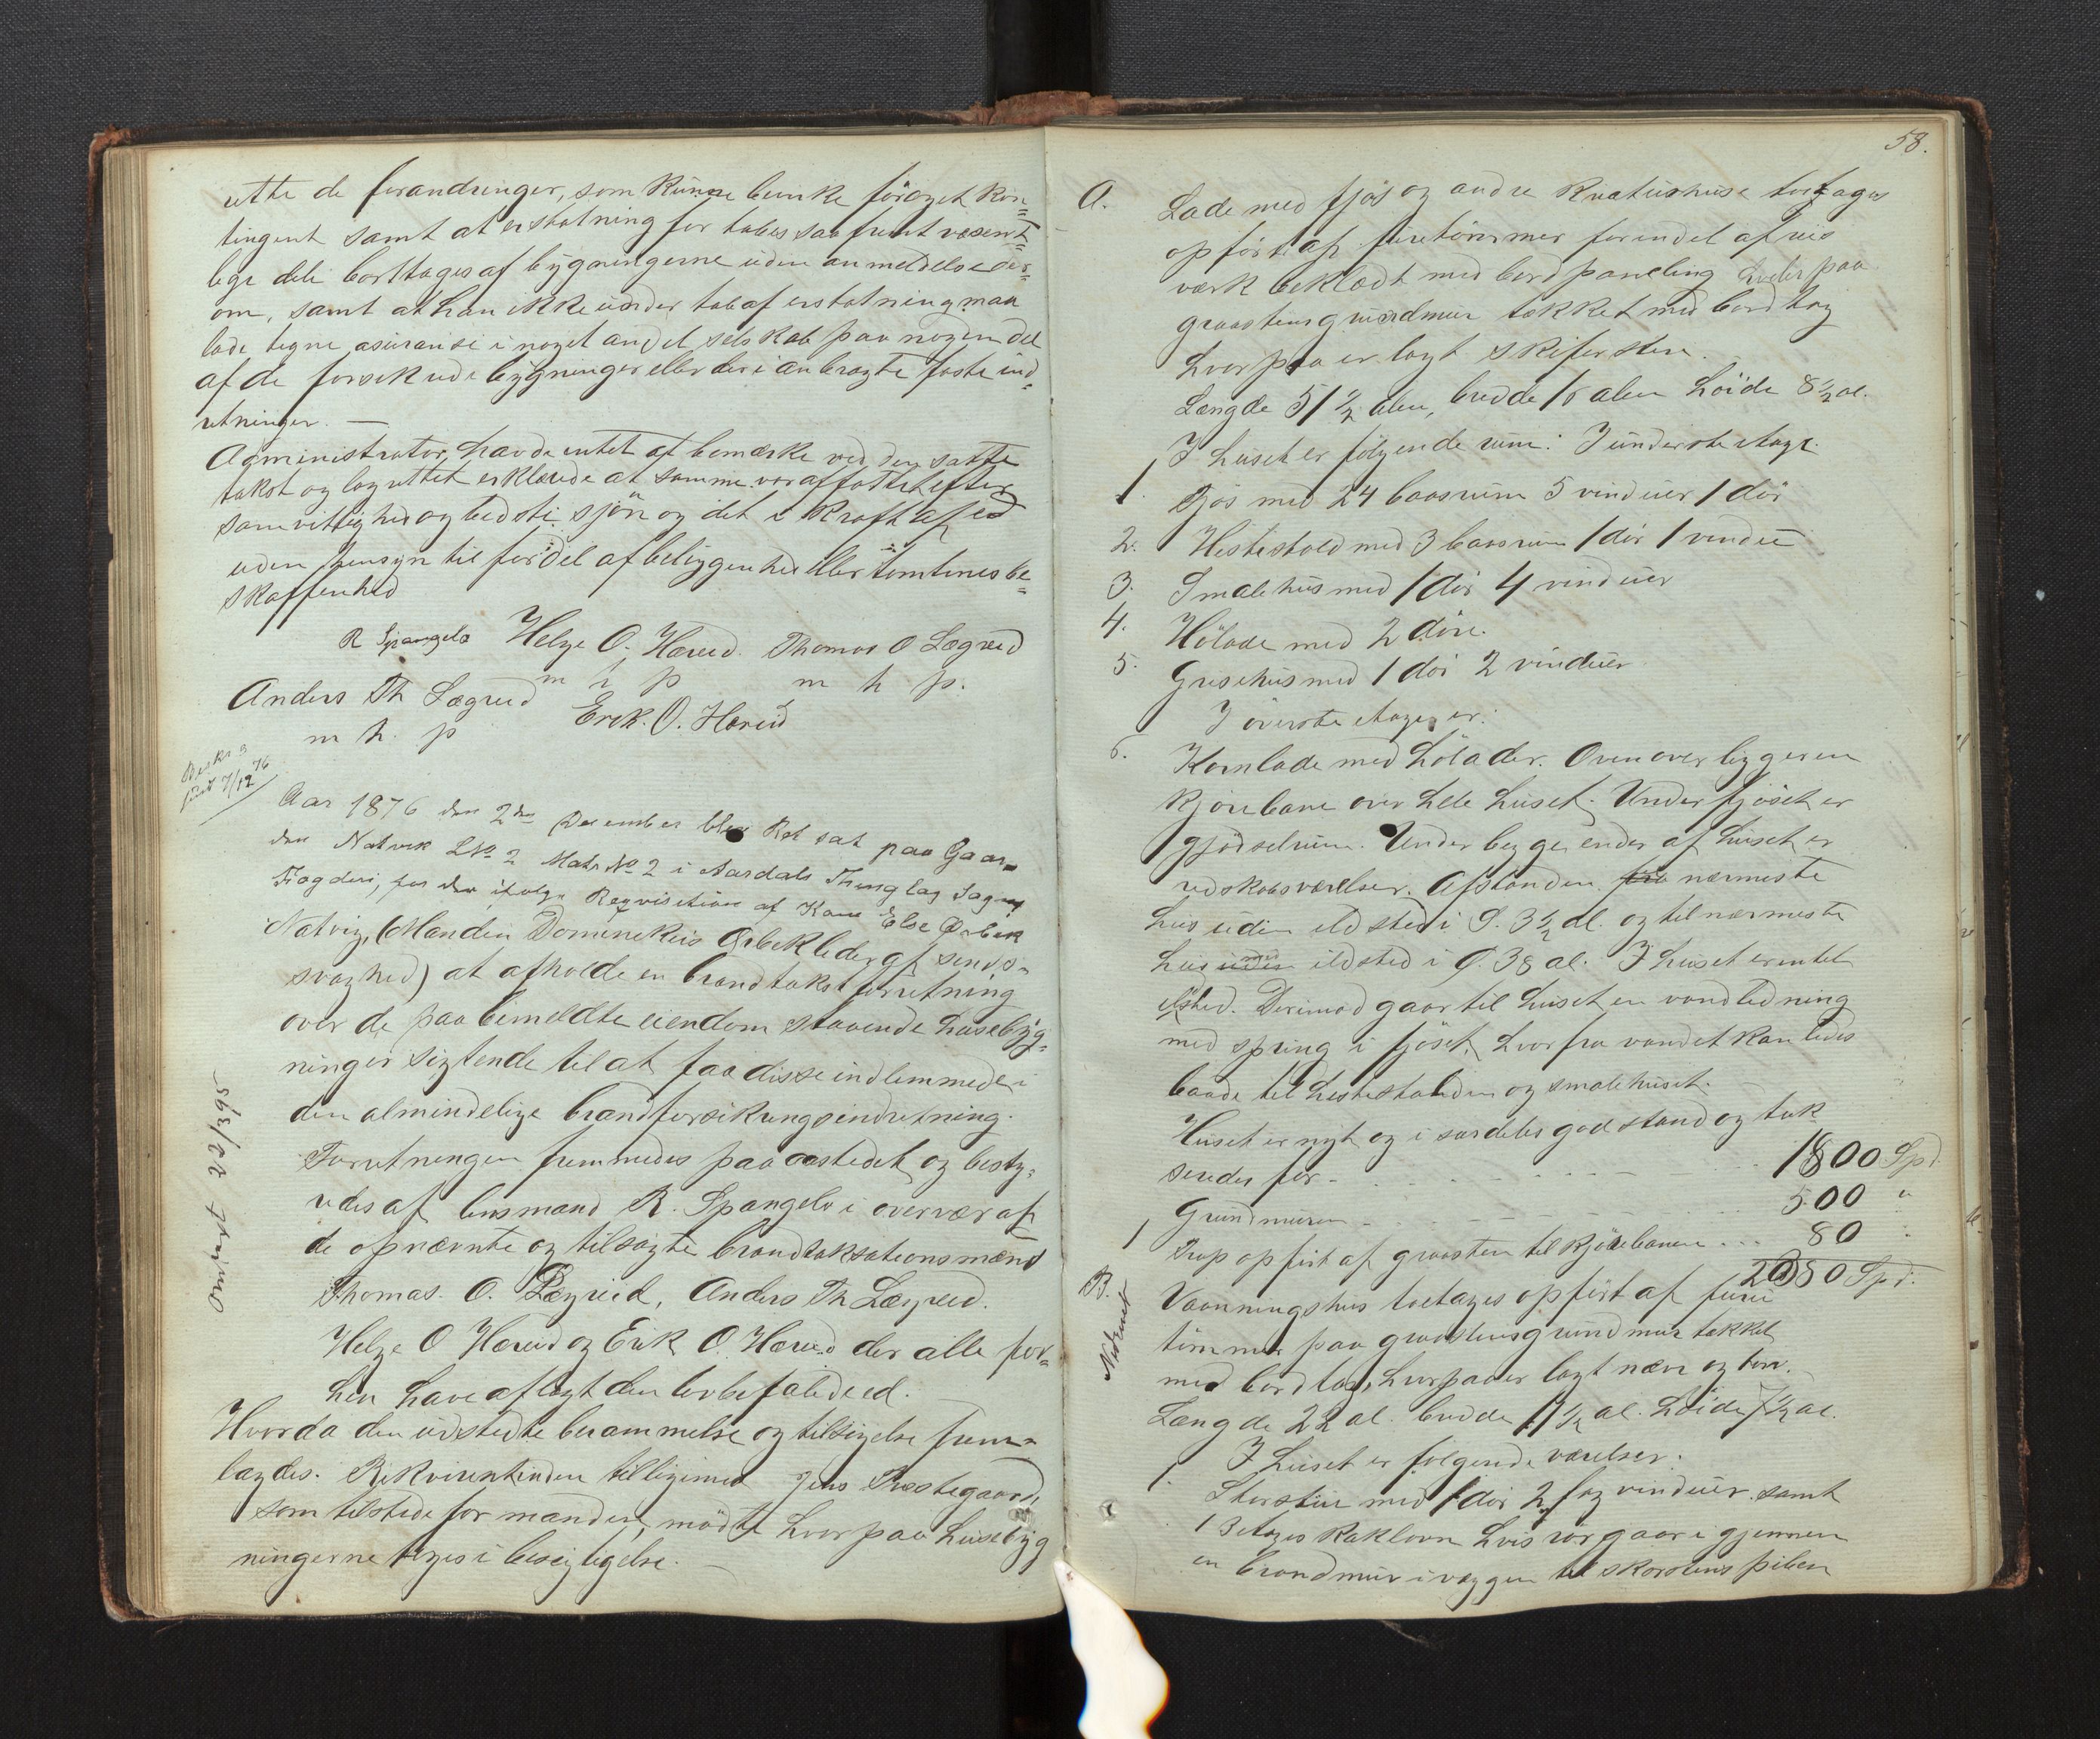 ette de forandringer, som kunne bevirke forøget kon=
tingent samt at erstatning for tabes saafremt væsent=
lige dele borttages af bygningerne uden anmeldelse der=
om, samt at han ikke under tab af erstatning maa
lade tegne asuranse i noget andet selskab paa nogen del
af de forsikrede bygninger eller deri anbragte faste ind=
retninger. —
Administrator havde intet at bemærke ved den satte
takst og lagrettet erklærede at samme var affattet efter
samvittighed og bedste sjøn og det i kraft af ed
uden hensyn til fordel af beliggenhed eller tomtenes be=
skaffenhed
R Spangelo Helge O. Hæreid. Thomas O Lægreid
m h p m h p.
Anders Th Lægreid Erik. O. Hæreid
m h. p
Beskr
sendt 7/12 76
Aar 1876 den 2den December blev Ret sat paa Gaar=
den Natvik LNo 2 Matr No 2 i Aardals Thinglag Sogns
Fogderi, for der ifølge Requisition af Kone Else Ørbek
Natvig, (Manden Dominekus Ørbek lider af sinds=
svaghed) at afholde en brandtakstforretning
over de paa bemeldte eiendom staaende husebyg=
ninger sigtende til at faa disse indlemmede i
den almindelige brandforsikringsindretning.
Forretningen fremmedes paa aastedet og besty=
redes af lensmand R. Spangelo i overvær af
de opnævnte og tilsagte brandtaksationsmænd
Thomas. O. Lægreid, Anders Th Lægreid.
Helge O Hæreid og Erik O. Hæreid der alle for=
hen have aflagt den lovbefalede ed.
Hvorda den udstedte berammelse og tilsigelse frem=
lagdes. Rekvirentinden tilligemed Jens Prestegaard,
som tilstede for manden, mødte hvorpaa husebyg
ningerne toges i besigtigelse. —
Omtaxt 22/3/95
58.
A. Lade med fjøs og andre kreaturhuse toetages
opført af furetømmer forendel af reis
værk beklædt med bordpaneling hviler paa
graastensgrundmur tækket med bordtag
hvorpaa er lagt skifersten.
Længde 51 1/2 alen, bredde 16 alen høide 8 1/2 al.
I huset er følgende rum: I underste etage.
1. Fjøs med 24 baasrum 5 vinduer 1 dør
2. Hestestald med 3 baasrum 1 dør 1 vindue
3. Smalehus med 1 dør 4 vinduer
4. Hølade med 2 døre.
5. Grisehus med 1 dør 2 vinduer
I øverste etage er:
6. Kornlade med hølader. Ovenover ligger en
kjørebane over hele huset. Under fjøset er
gjødselrum. Under begge ender af huset er
redskabsværelser. Afstanden fra nærmeste
hus uden ildsted i S. 3 1/2 al. og til nærmeste
hus uden med ildsted i S. 38 al. I huset er intet
ildsted. Derimod gaar til huset en vandledning
med spring i fjøset, hvorfra vandet kan ledes
baade til hestestalden og smalehuset.
Huset er nyt og i særdeles god stand og tak
seredes for . . . . . 1800 Spd.
Grundmuren . . . . . 500 "
1 Trap opført af graasten til kjørebanen . . . 80 "
2080 Spd.
B. Vaaningshus toetages opført af furu
Nedrevet
tømmer paa graastensgrundmur tækket
med bordtag, hvorpaa er lagt næver og torv.
Længde 22 al. bredde 11 1/2 al. høide 7 1/2 al.
I huset er følgende værelser:
1. Storstue med 1 dør 2 fag vinduer samt
1 3 etages kakkelovn hvis rør gaar igjennem
en brandmur i væggen til skorstens piben